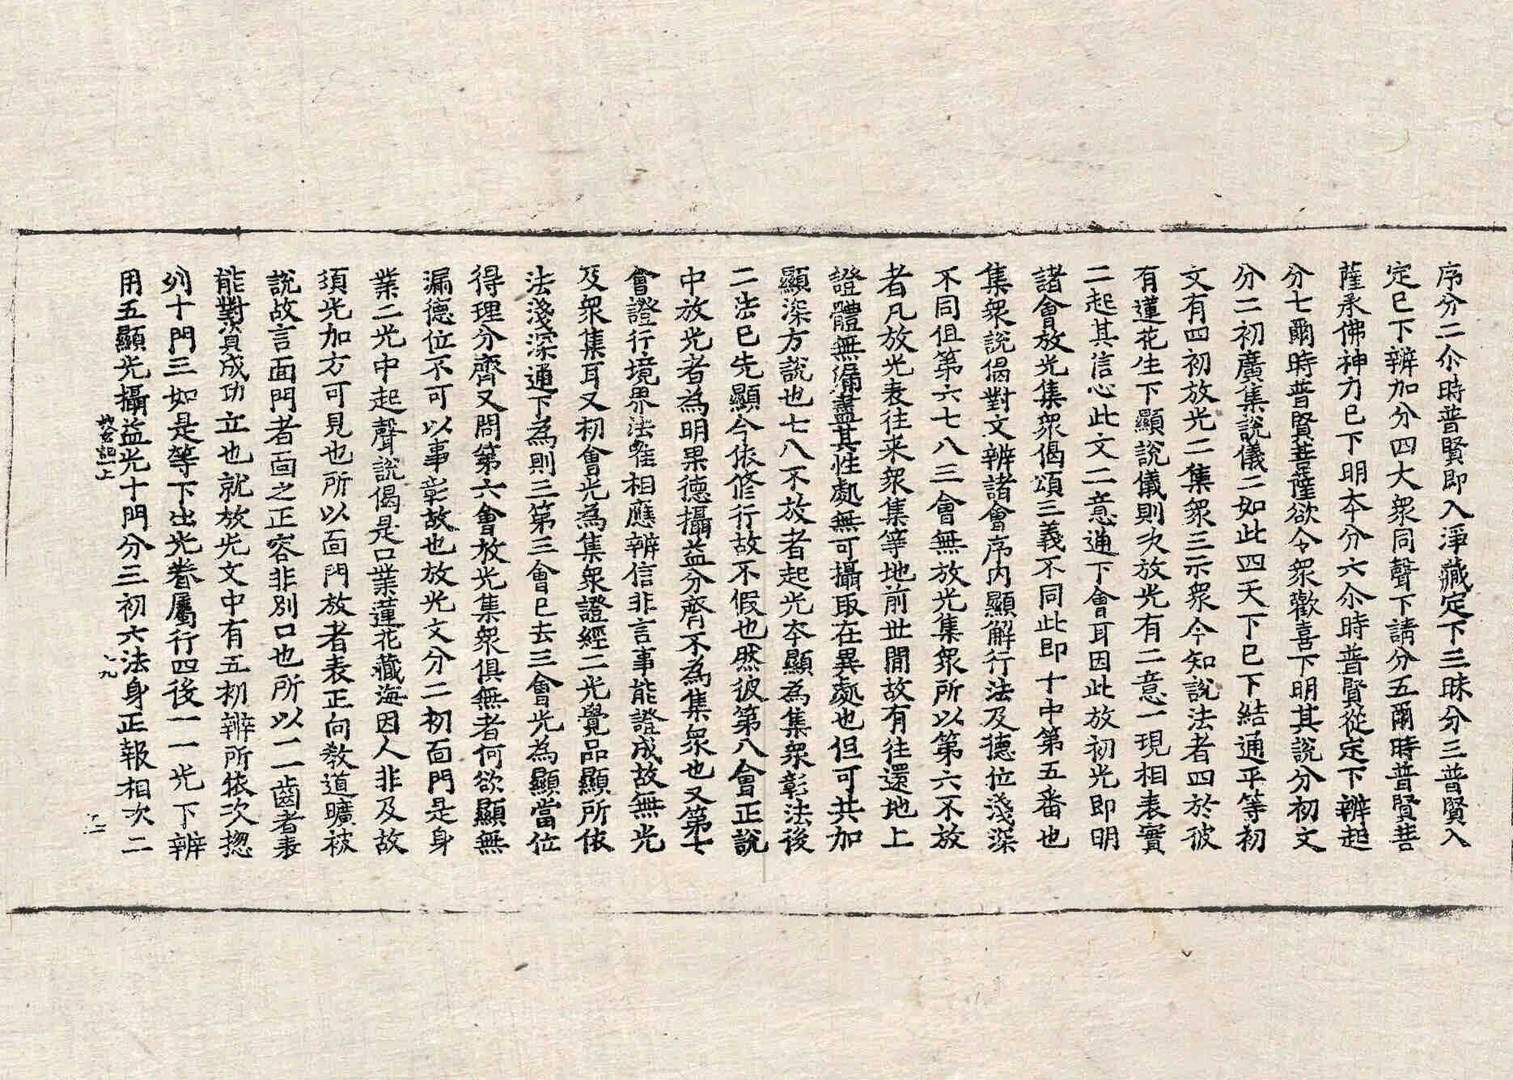 序分二尒時普賢即入淨藏定下三昧分三普賢入
定已下辨加分四大衆同聲下請分五爾時普賢菩
薩承佛神力已下明本分六尒時普賢從定下辨起
分七爾時普賢菩薩欲令衆歡喜下明其說分初文
分二初廣集說儀二如此四天下已下結通平等初
文有四初放光二集衆三示衆令知說法者四於彼
有蓮花生下顯說儀則次放光有二意一現相表實
二起其信心此文二意通下會耳因此放初光即明
諸會放光集衆偈頌三義不同此即十中第五番也
集衆說偈對文辨諸會序內顯解行法及德位淺深
不同但第六七八三會無放光集衆所以第六不放
者凡放光表往来衆集等地前世間故有往還地上
證體無漏盡其性處無可攝取在異處也但可共加
顯深方說也七八不放者起光本顯為集衆彰法後
二法已先顯今依修行故不假也然彼第八會正說
中放光者為明果德攝益分齊不為集衆也又第七
會證行境界法雖相應辨信非言事能證成故無光
及衆集耳又初會光為集衆證經二光覺品顯所依
法淺深通下為則三第三會已去三會光為顯當位
得理分齊又問第六會放光集衆俱無者何欲顯無
漏德位不可以事彰故也放光文分二初面門是身
業二光中起聲說偈是口業蓮花藏海因人非及故
須光加方可見也所以面門放者表正向教道曠被
說故言面門者面之正容非別口也所以二齒者表
能對資成功立也就放光文中有五初辨所依次揔
列十門三如是等下出光眷屬行四後一一光下辨
用五顯光攝益光十門分三初六法身正報相次二